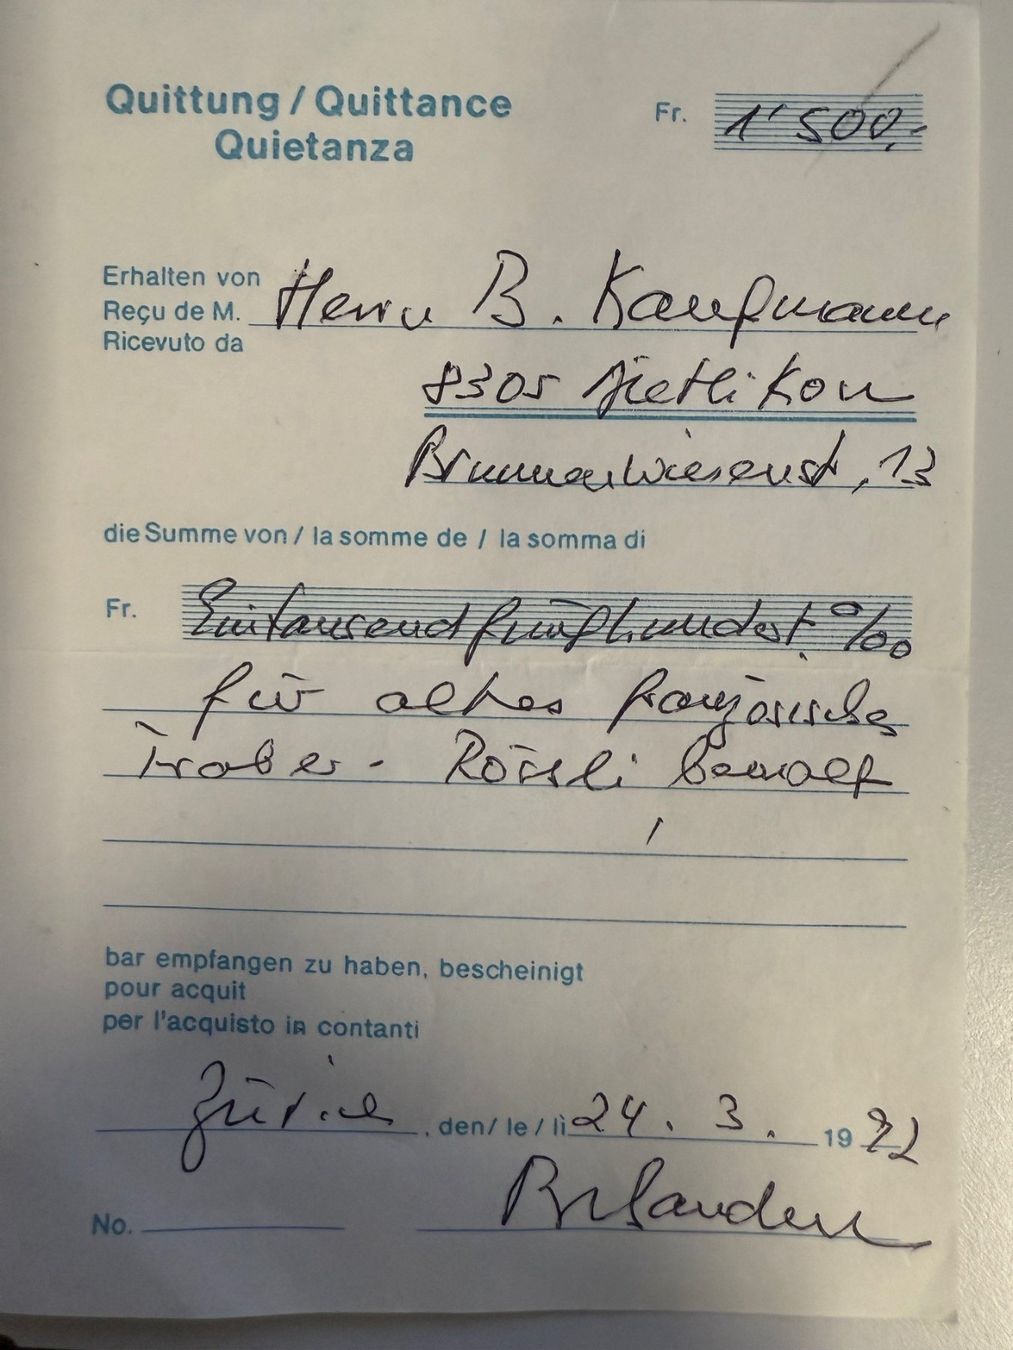 Quittung / Quittance
Quietanza
Fr. 1'500.-
Erhalten von
Reçu de M. Herrn B. Kaufmann
Ricevuto da
8305 Dietlikon
Brunnenwiesenst. 13
die Summe von / la somme de / la somma di
Fr. Eintausendfünfhundert. %oo
für altes französisches
Traber- Rössli bemalt
bar empfangen zu haben, bescheinigt
pour acquit
per l'acquisto in contanti
Zürich, den / le / lì 24. 3. 1992
No.